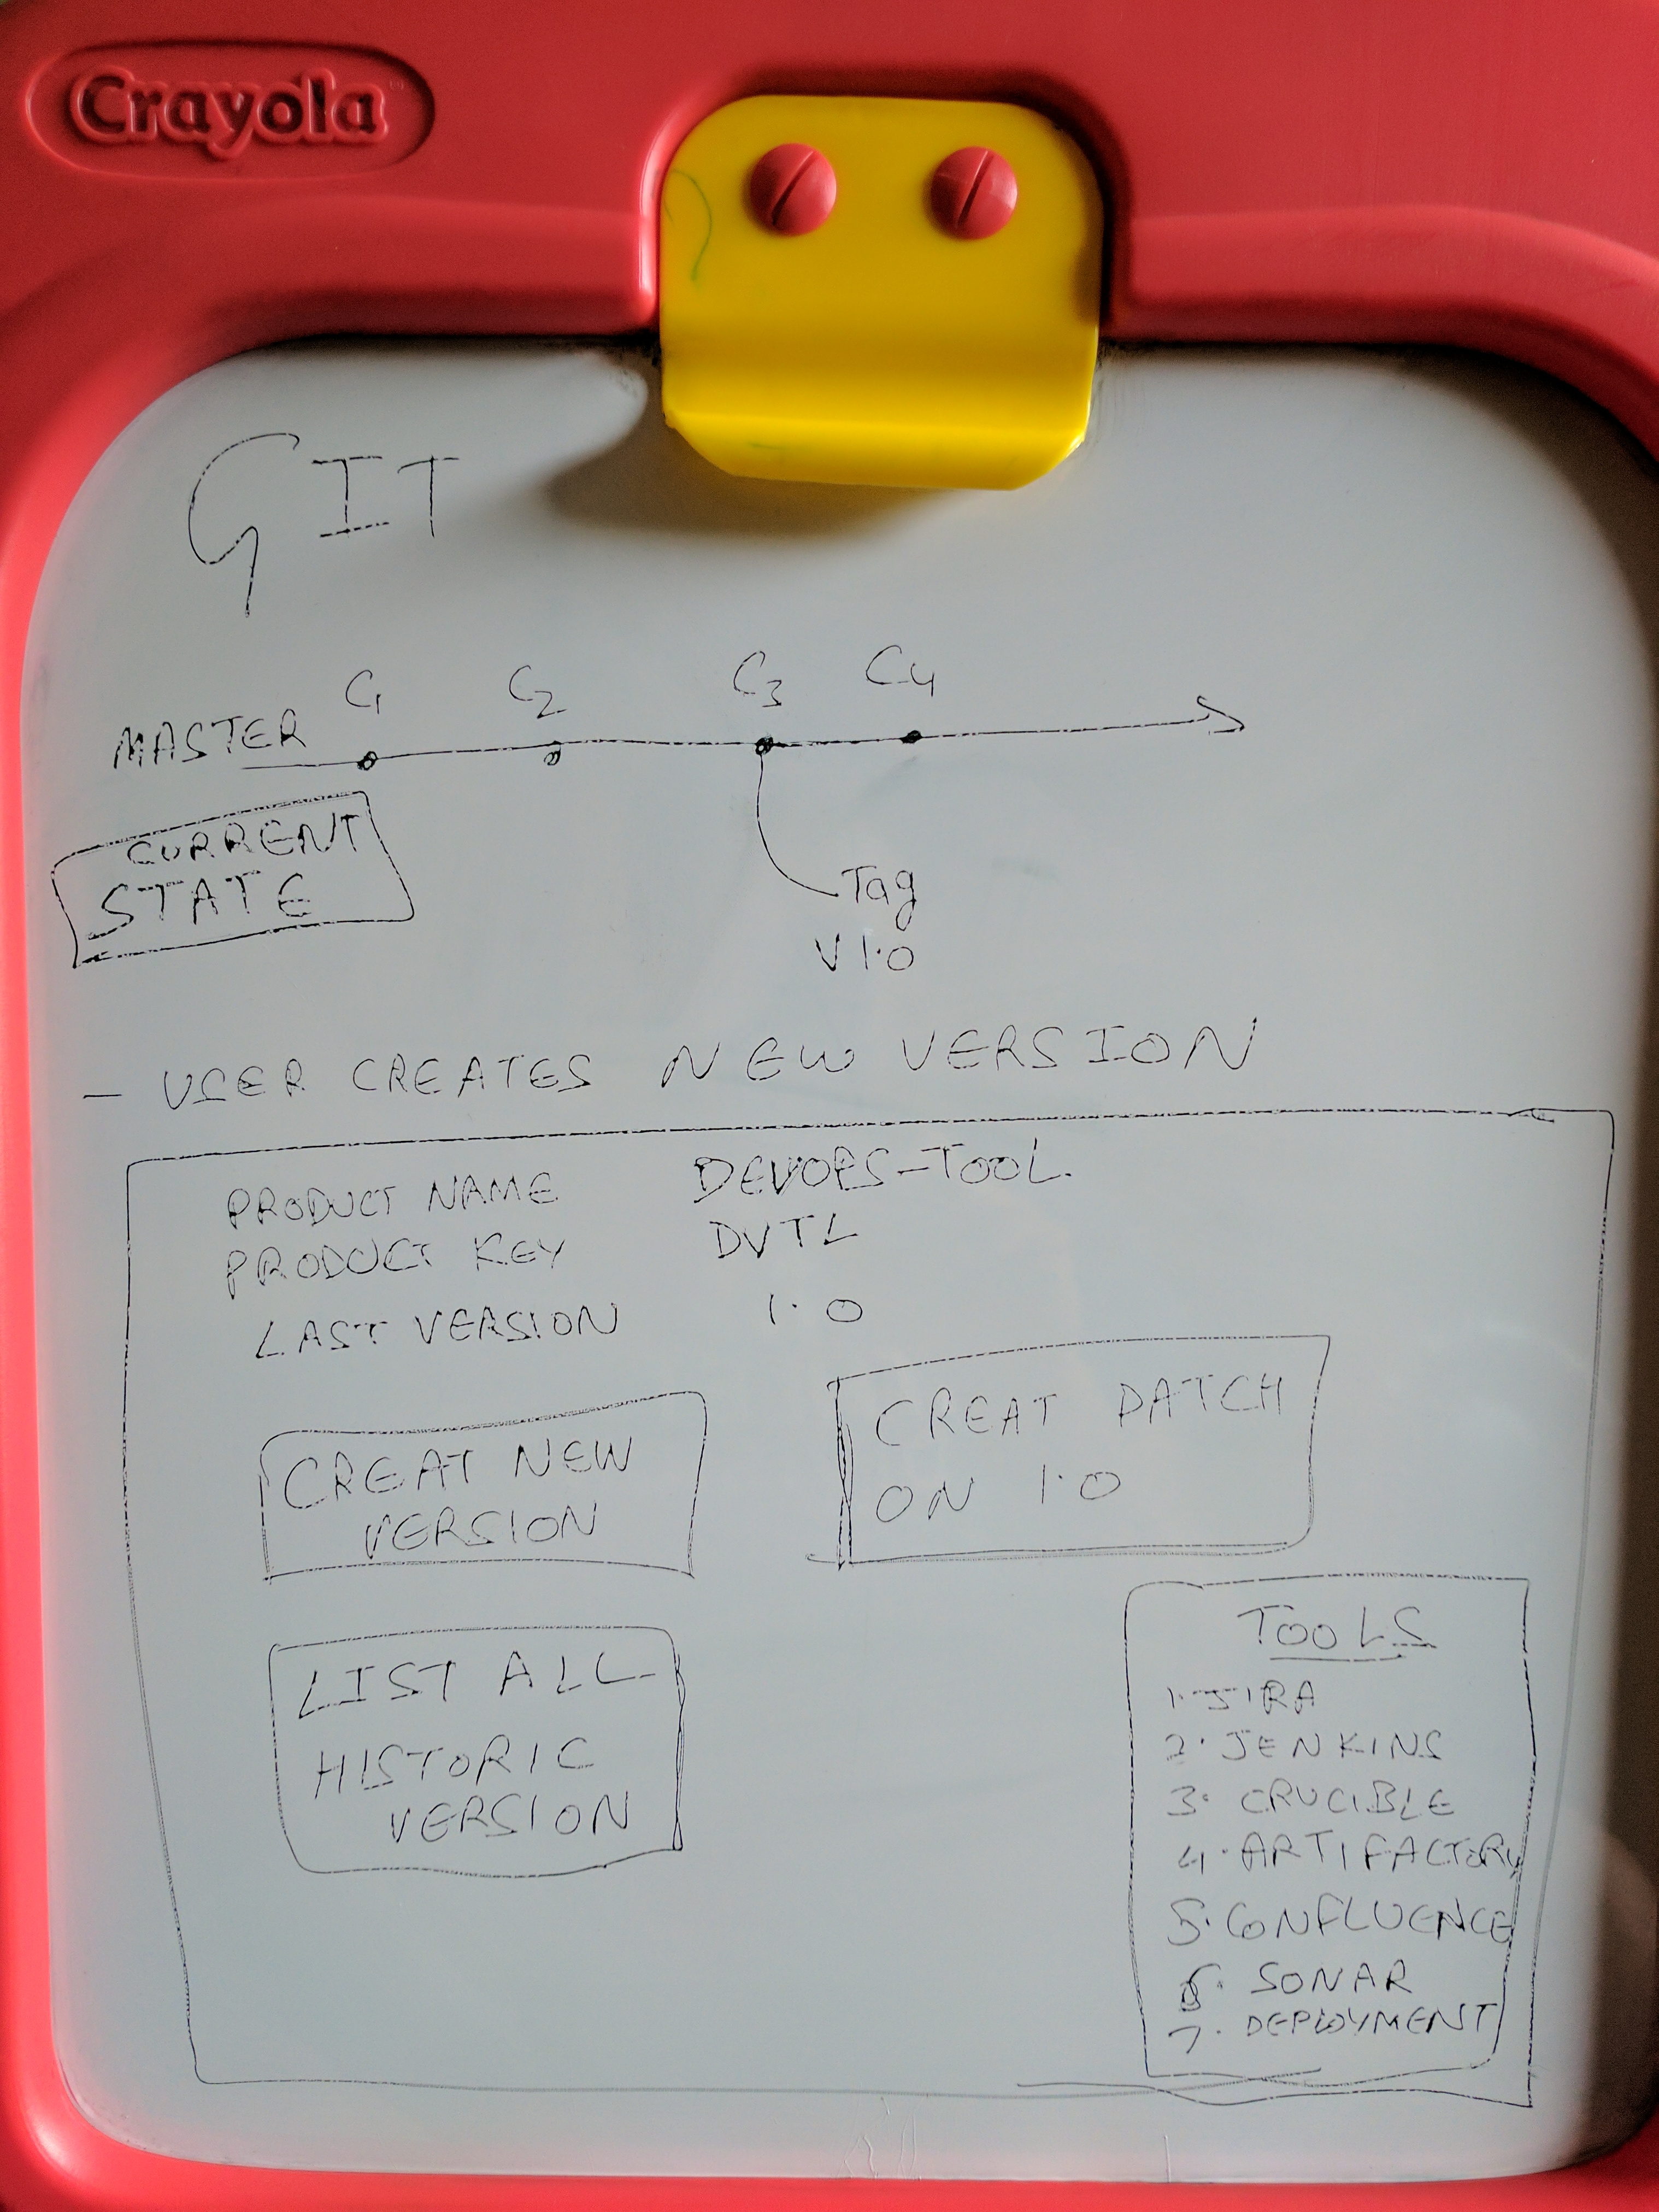 Crayola
GIT
C1 C2 C3 C4
MASTER
CURRENT
STATE
Tag
V 1.0
- USER CREATES NEW VERSION
PRODUCT NAME DEVOPS-TOOL
PRODUCT KEY DVTL
LAST VERSION 1.0
CREAT NEW
VERSION
CREAT PATCH
ON 1.0
LIST ALL
HISTORIC
VERSION
TOOLS
1. JIRA
2. JENKINS
3. CRUCIBLE
4. ARTIFACTORY
5. CONFLUENCE
6. SONAR
7. DEPLOYMENT